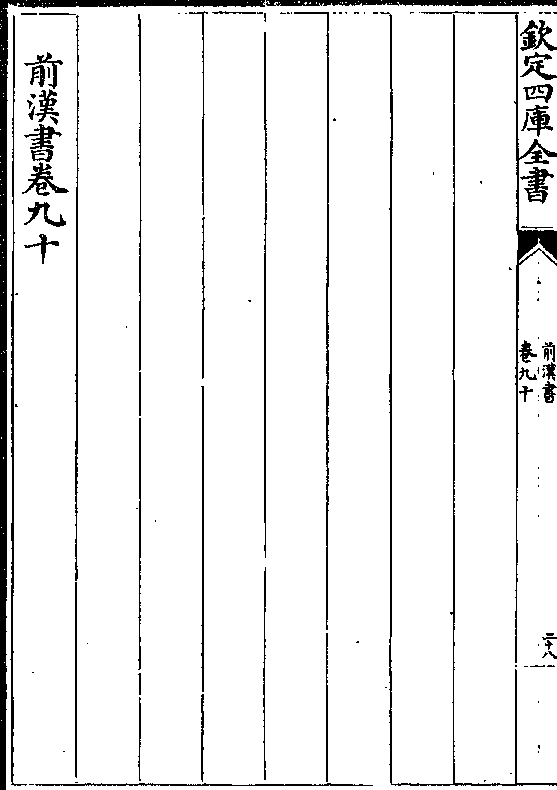 欽定四庫全書
前漢書
卷九十
二十八
前漢書卷九十